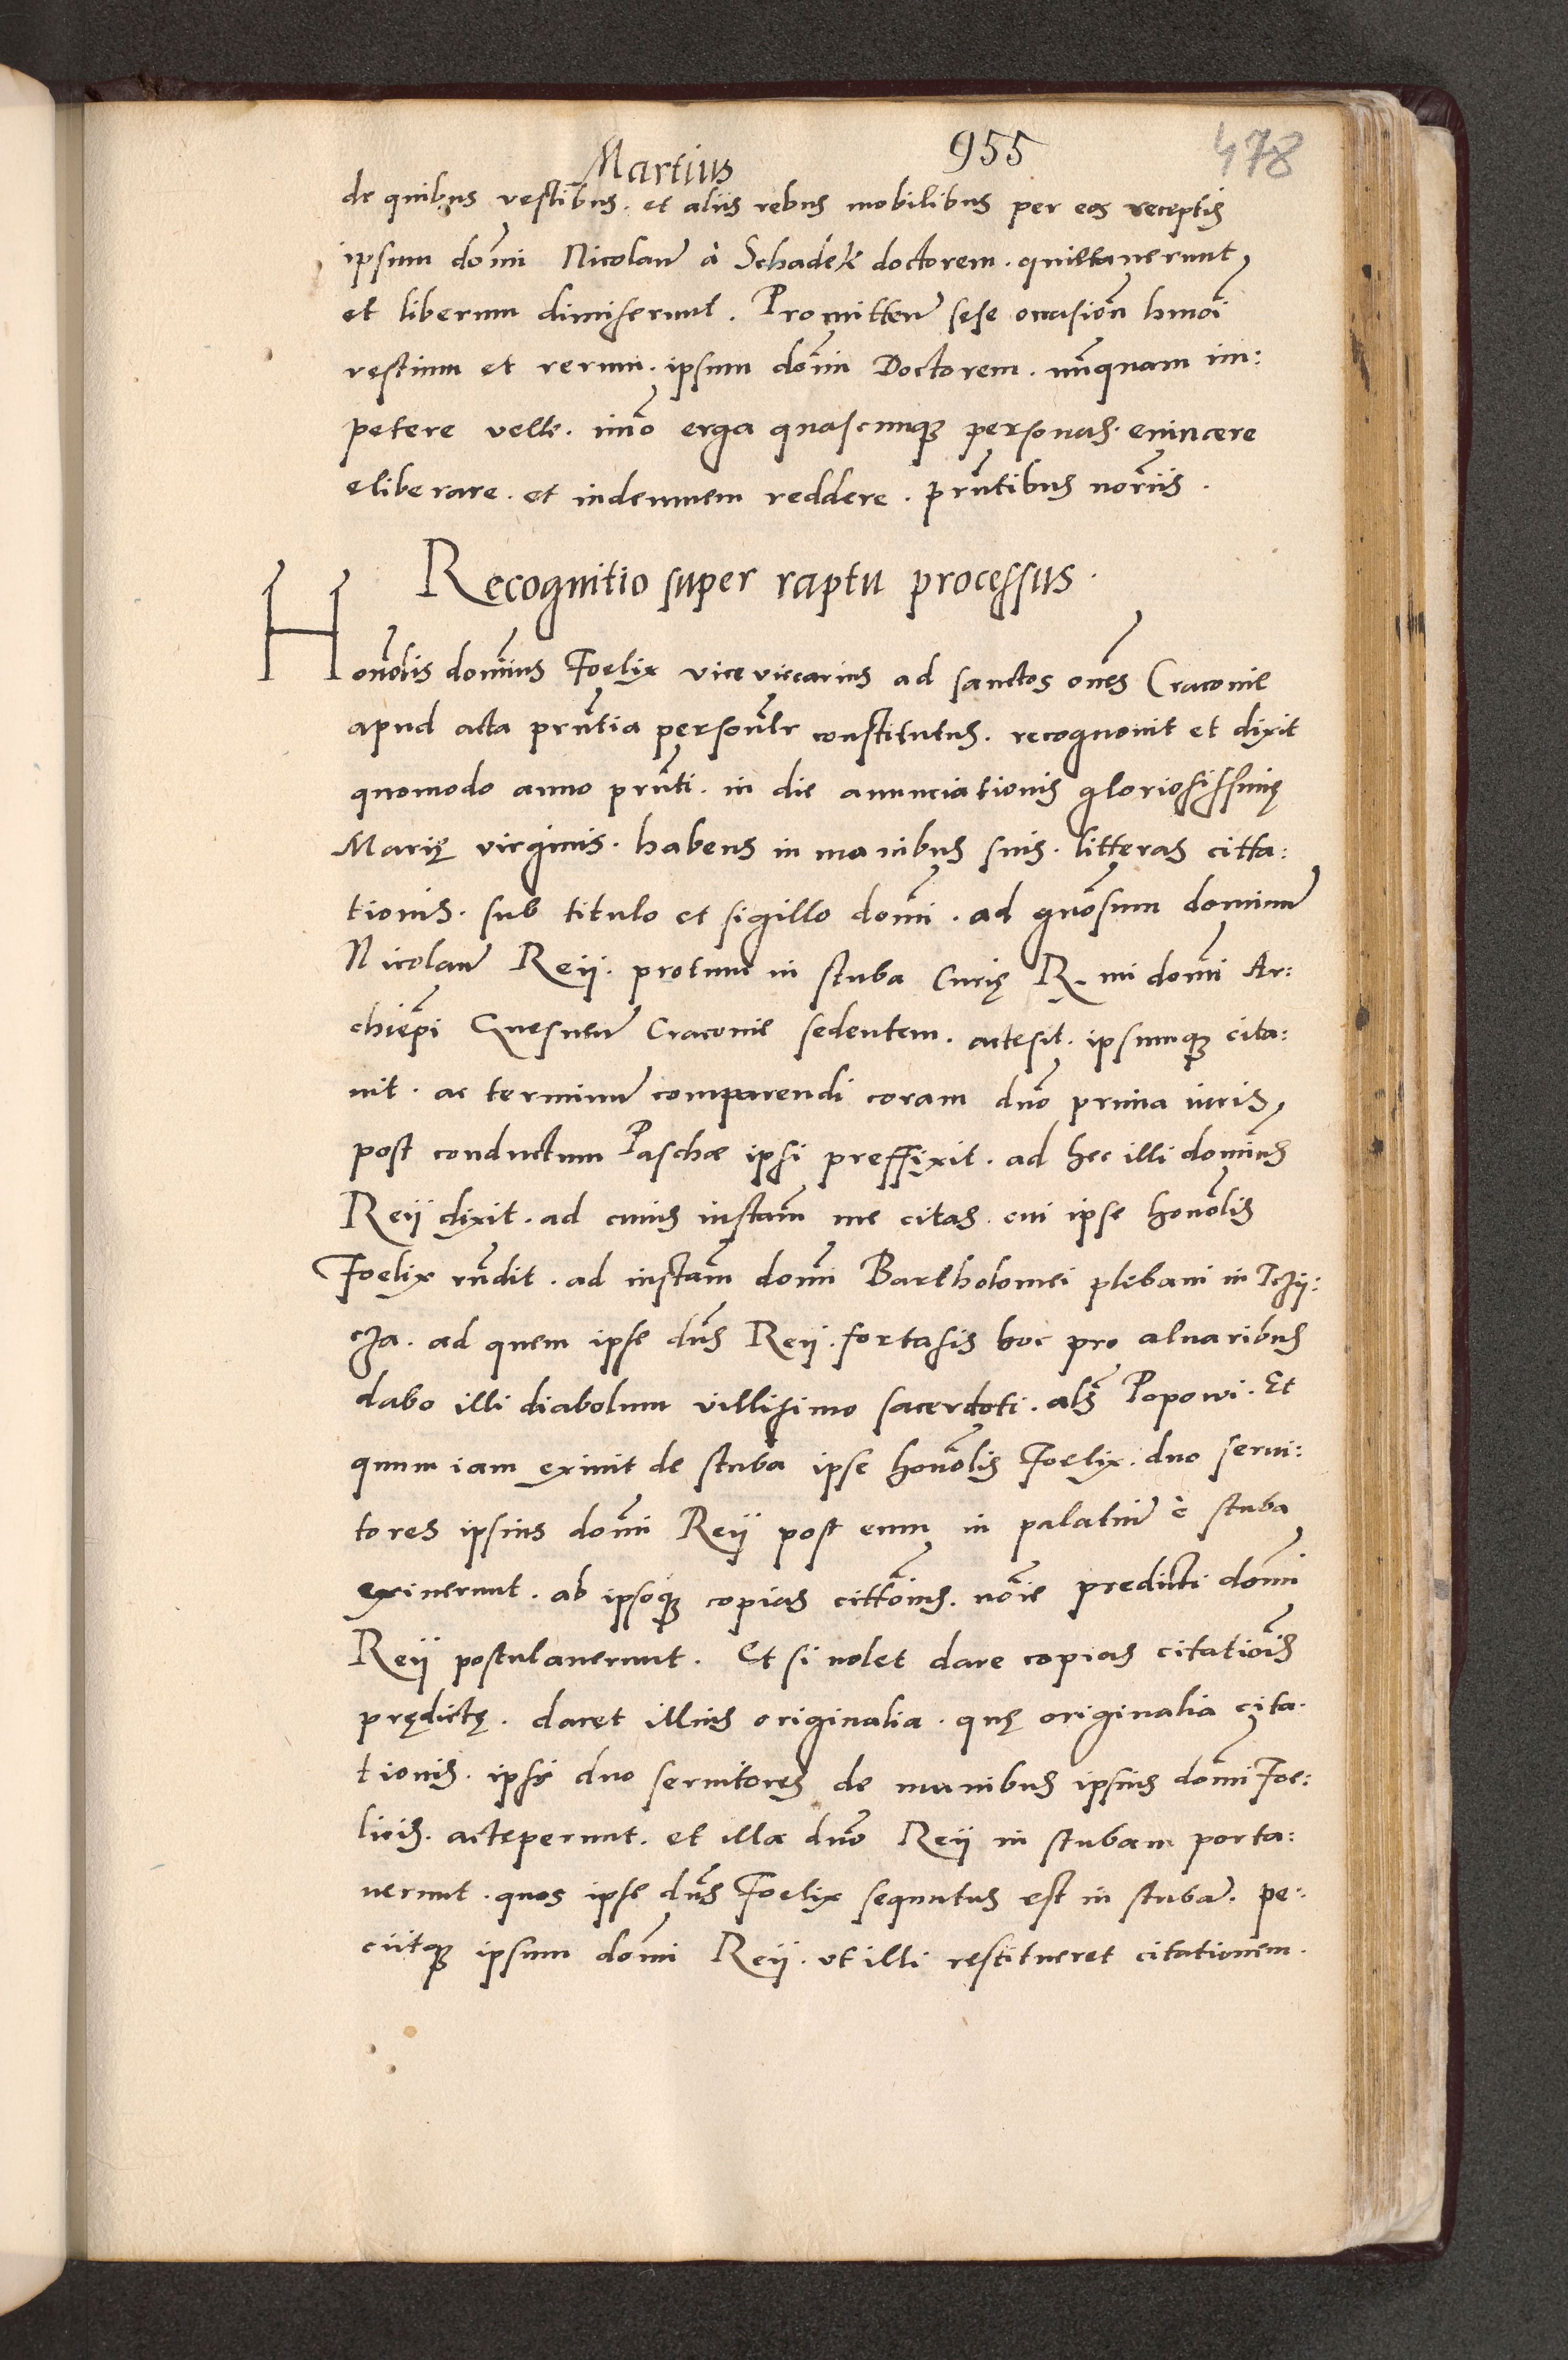 Martius 955 478
de quibus vestibus. et aliis rebus mobilibus per eos receptis
ipsum dom̃i Nicolaũ à Schadek doctorem. quittauerunt,
et liberum dimiserunt. Promittẽn sese occasioñ hmõi
vestium et rerum. ipsum dom̃i Doctorem. nũnquam im:
petere velle. imõ erga quascunqꝫ personas. euincere
eliberare. et indemnem reddere. prñtibus noriis.
Recognitio super raptu processus.
Honõlis dominus Foelix vice viccarius ad sanctos oñes Cracouie
apud acta prñtia persoñlr constitutus. recognouit et dixit
quomodo anno prñti. in die anunciationis gloriosissimę
Marię virginis. habens in manibus suis. litteras citta:
tionis. sub titulo et sigillo dom̃i. ad gñosum dominũ
Nicolaũ Reij. protunc in stuba Curię R. mi dom̃i Ar:
chiep̃i Gnesneñ Cracouie sedentem. accesit. ipsumqꝫ cita:
uit. ac terminũ comparendi coram dnõ prima iuris,
post conductum Paschæ ipsi preffixit. ad hec illi dominus
Reij dixit. ad cuius instam̃ me citas. cui ipse honõlis
Foelix rñdit. ad instam̃ dom̃i Bartholomei plebani in Tczy:
cza. ad quem ipse dñs Reij. fortasis hoc pro aluaribus
dabo illi diabolum villisimo sacerdoti. als̃ Popowi. Et
quum iam exiuit de stuba ipse honõlis Foelix. duo serui:
tores ipsius dom̃i Reij post eum in palatiũ è stuba
exiuerunt. ab ipsoqꝫ copias cittõnis. nõie predicti dom̃i
Reij postulauerunt. Et si nolet dare copias citatiõis
prędictę. daret illius originalia. quę originalia cita:
tionis. ipsi duo seruitores de manibus ipsius dom̃i Foe:
licis. acceperunt. et illa dnõ Reij in stubam porta:
uerunt. quos ipse dñs Foelix sequutus est in stubã. pe:
ciitqꝫ ipsum dom̃i Reij. vt illi restitueret citationem.